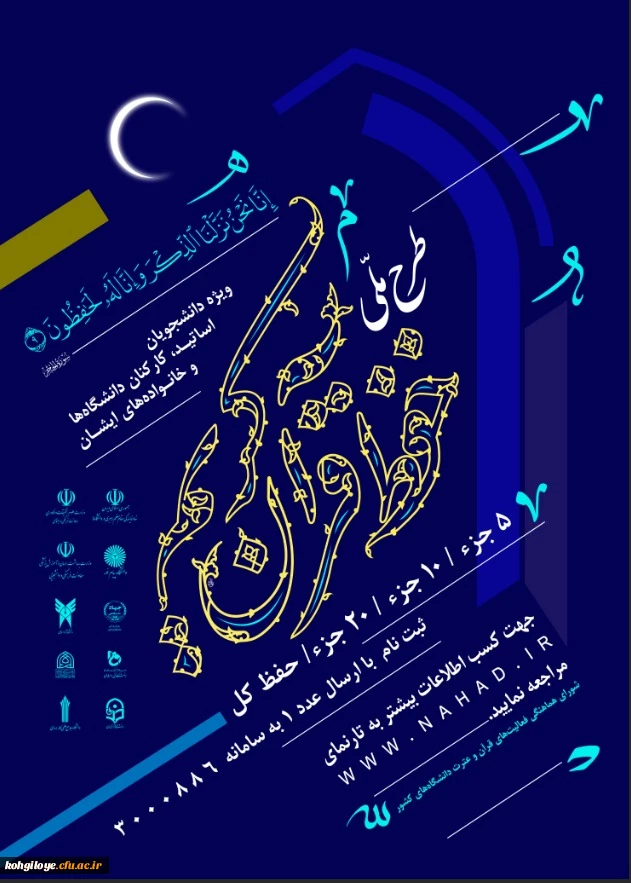 إِنَّا نَحْنُ نَزَّلْنَا الذِّكْرَ وَإِنَّا لَهُ لَحَافِظُونَ
طرح ملّی
حفظ قرآن کریم
ویژه دانشجویان
اساتید، کارکنان دانشگاه‌ها
و خانواده‌های ایشان
۵ جزء / ۱۰ جزء / ۲۰ جزء / حفظ کل
ثبت نام با ارسال عدد ۱ به سامانه ۳۰۰۰۰۸۸۶
جهت کسب اطلاعات بیشتر به تارنمای
WWW.NAHAD.IR
مراجعه نمایید.
شورای هماهنگی فعالیت‌های قرآن و عترت دانشگاه‌های کشور
kohgiloye.cfu.ac.ir